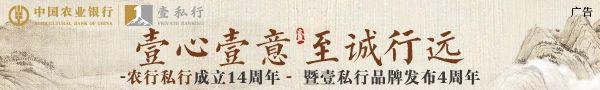 中国农业银行
AGRICULTURAL BANK OF CHINA
壹私行
PRIVATE BANKING
广告
壹心壹意 至诚行远
-农行私行成立14周年- 暨壹私行品牌发布4周年